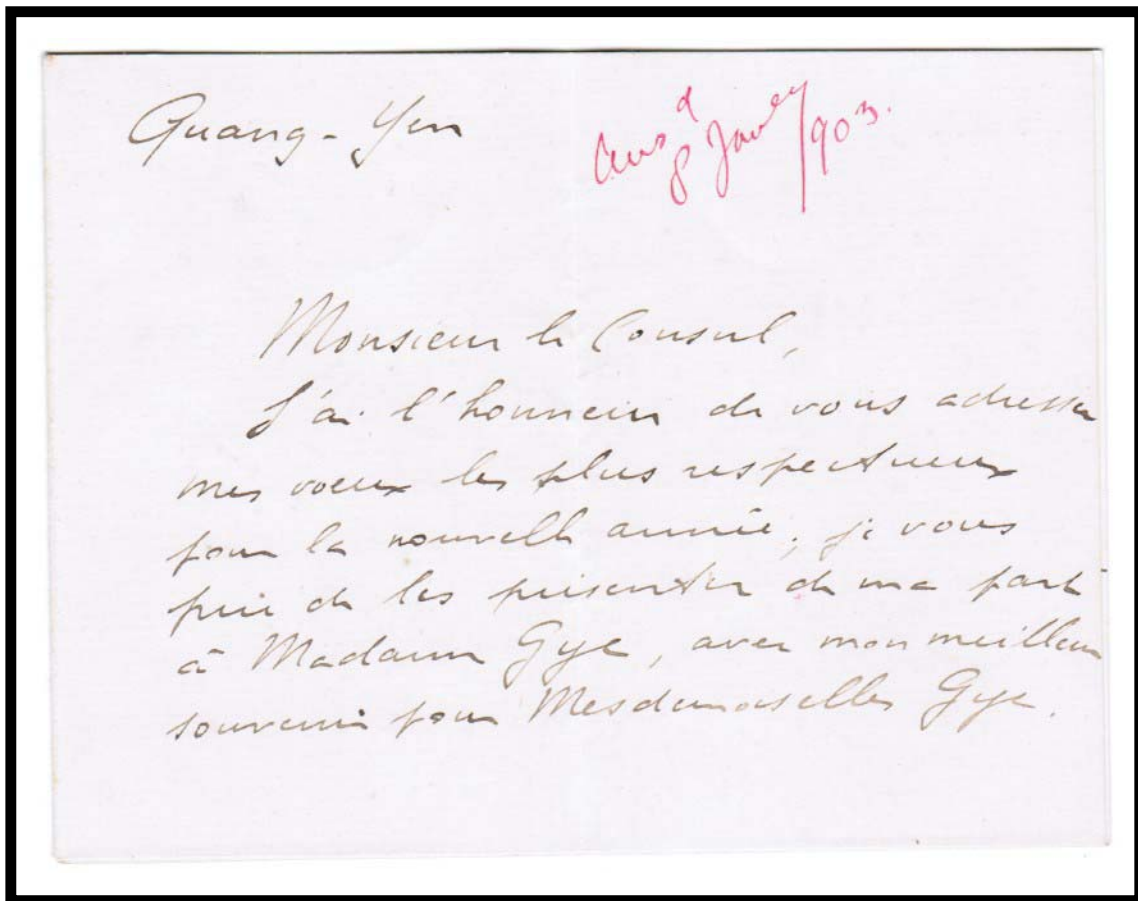 Quang-Yen
Ansd
8 Jany/903.
Monsieur le Consul,
J'ai l'honneur de vous adresser
mes voeux les plus respectueux
pour la nouvelle année, je vous
prie de les présenter de ma part
à Madame Gye, avec mon meilleur
souvenir pour Mesdemoiselles Gye.